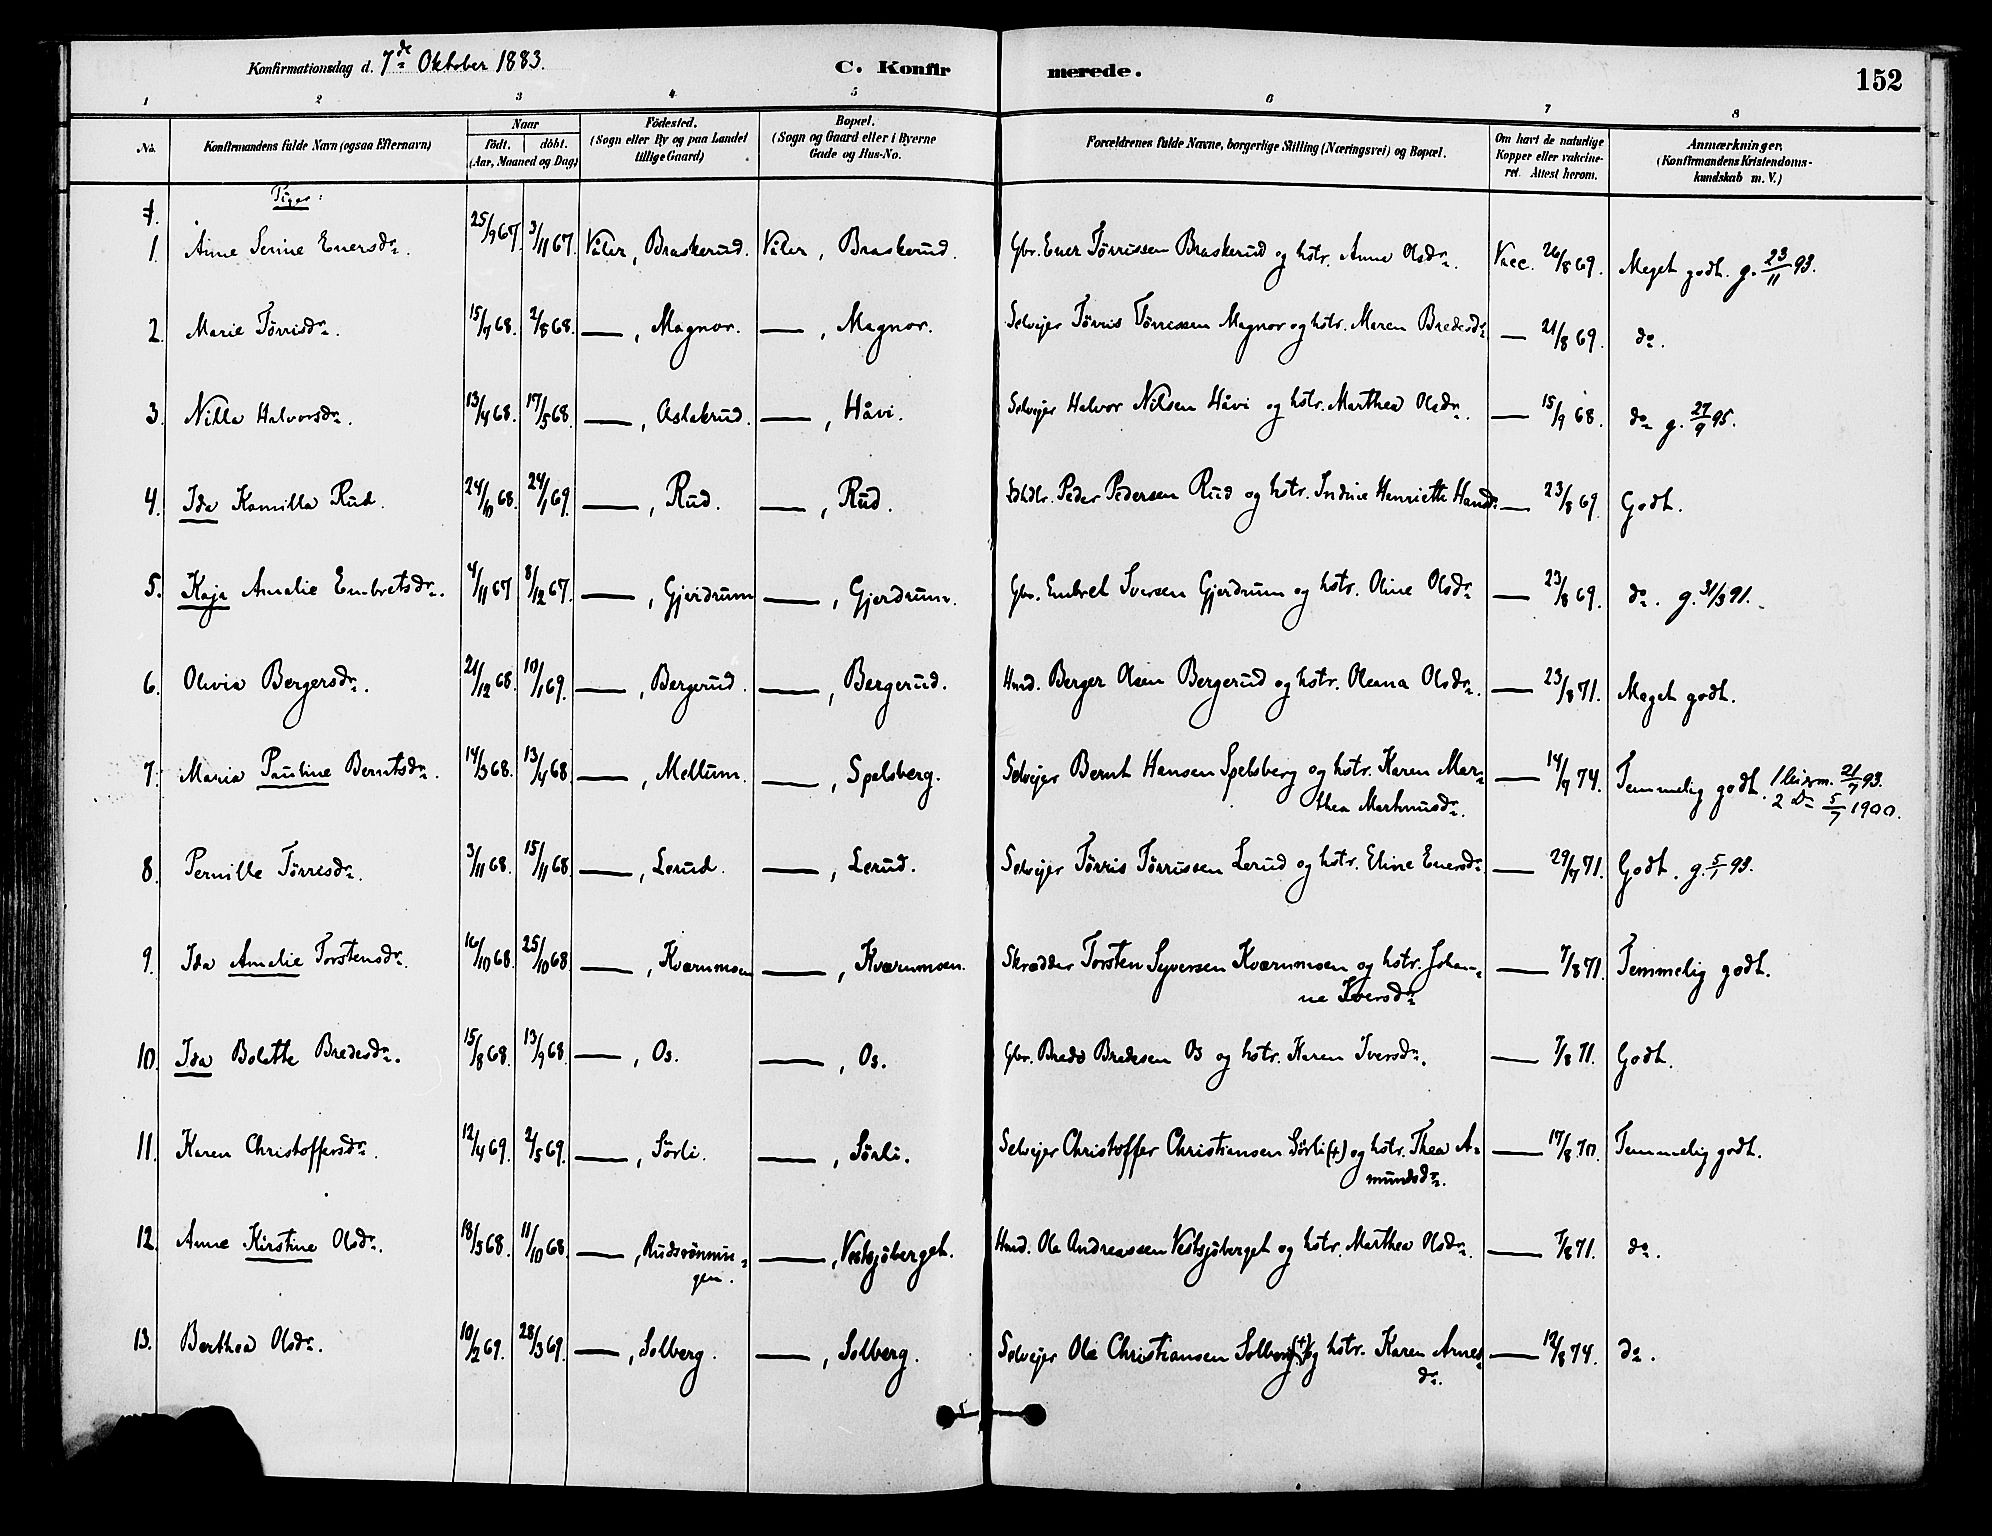 Konfirmationsdag d. 7de Oktober 1883. C. Konfir merede. 152
1 2 3 4 5 6 7 8
No. Konfirmandens fulde Navn (ogsaa Efternavn) Naar født. døbt. (Aar, Maaned og Dag) Fødested. (Sogn eller By og paa Landet tillige Gaard) Bopæl. (Sogn og Gaard eller i Byerne Gade og Hus-No. Forældrenes fulde Navne, borgerlige Stilling (Næringsvei) og Bopæl. Om havt de naturlige Kopper eller vakcineret. Attest herom. Anmærkninger. (Konfirmandens Kristendomskundskab m. V.)
Piger:
1. Anne Serine Enersdr. 25/9 67. 3/11 67. Våler, Braskerud. Våler, Braskerud. Gbr. Ener Tørrissen Braskerud og hstr. Anne Olsdr. Vacc. 26/8 69. Meget godt. g. 23/11 93.
2. Marie Tørrisdr. 15/7 68. 2/8 68. —, Magnor. —, Magnor. Selvejer Tørris Tørrissen Magnor og hstr. Maren Bredesdr. — 21/8 69. do.
3. Nilla Halvorsdr. 13/4 68. 17/5 68. —, Aslakrud. —, Håvi. Selvejer Halvor Nilsen Håvi og hstr. Marthea Olsdr. — 15/9 68. do g. 27/9 95.
4. Ida Kamilla Rud. 24/10 68. 24/1 69. —, Rud. —, Rud. Peder Pedersen Rud og hstr. Indine Henriette Hansdr. — 23/8 69. Godt.
5. Kaja Amalie Embretsdr. 4/11 67 8/12 67. —, Gjerdrum —, Gjerdrum. Gbr. Embret Iversen Gjerdrum og hstr. Oline Olsdr. — 23/8 69. do. g. 31/3 91.
6. Olivia Bergersdr. 21/12 68. 10/1 69. —, Bergerud. —, Bergerud. Hmd. Berger Olsen Bergerud og hstr. Oleana Olsdr. — 23/8 71. Meget godt.
7. Maria Pauline Berntsdr. 14/3 68. 13/4 68. —, Mellum. —, Spelsberg. Selvejer Bernt Hansen Spelsberg og hstr. Karen Mar- — 14/9 74. Temmelig godt. 1 leierm. 21/7 93.
thea Marthnusdr. 2 do 5/7 1900.
8. Pernille Tørresdr. 3/11 68. 15/11 68. —, Lerud. —, Lerud. Selvejer Tørris Tørrissen Lerud og hstr. Eline Enersdr. — 29/7 71. Godt. g. 5/1 93.
9. Ida Amalie Torstensdr. 16/10 68. 25/10 68. —, Kværnmoen —, Kværnmoen. Skrædder Torsten Syversen Kværnmoen og hstr. Johan- — 7/8 71. Temmelig godt.
ne Iversdr.
10. Ida Bolette Bredesdr. 15/8 68. 13/9 68. —, Os. —, Os. Gbr. Brede Bredesen Os og hstr. Karen Iversdr. — 7/8 71. Godt.
11. Karen Christoffersdr. 12/4 69. 2/5 69. —, Sörli. —, Sörli. Selvejer Christoffer Christiansen Sörli (+) og hstr. Thea A- — 17/8 70. Temmelig godt.
mundsdr.
12. Anne Kirstine Olsdr. 18/3 68. 11/10 68. —, Rudsrönnin- —, Vestsjöberget. Hmd. Ole Andreassen Vestsjöberget og hstr. Marthea Olsdr. — 7/8 71. do.
gen.
13. Berthea Olsdr. 10/2 69. 28/3 69. —, Solberg. —, Solberg. Selvejer Ole Christiansen Solberg (+) og hstr. Karen Arnes- — 12/8 74. do.
dr.